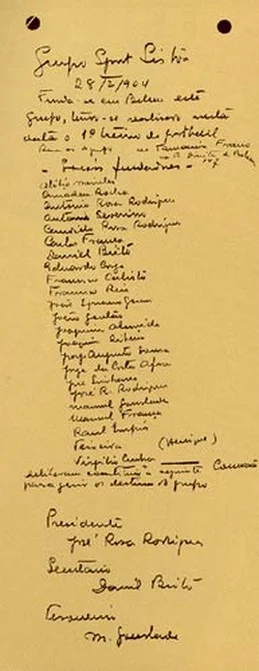 Grupo Sport Lisboa
28/2/904
Funda-se em Belem este
grupo, tendo-se realizado nesta
data o 1º treino de football
Farmacia Franco
Socios fundadores -
Abilio Meireles
Amadeu Rocha
Antonio Rosa Rodrigues
Antonio Severino
Candido Rosa Rodrigues
Carlos França
Daniel Brito
Eduardo Corga
Francisco Calisto
Francisco Reis
José Ignacio
João Goulão
Joaquim Almeida
Joaquim Ribeiro
Jorge Augusto Sousa
Jorge da Costa Afra
José Linhares
José R. Rodrigues
Manuel Gourlade
Manuel França
Raul Empis
Teixeira (Henrique)
Virgilio Cunha
deliberam constituir a seguinte Comissão
para gerir os destinos do grupo
Presidente
José Rosa Rodrigues
Secretario
Daniel Brito
Tesoureiro
M. Gourlade